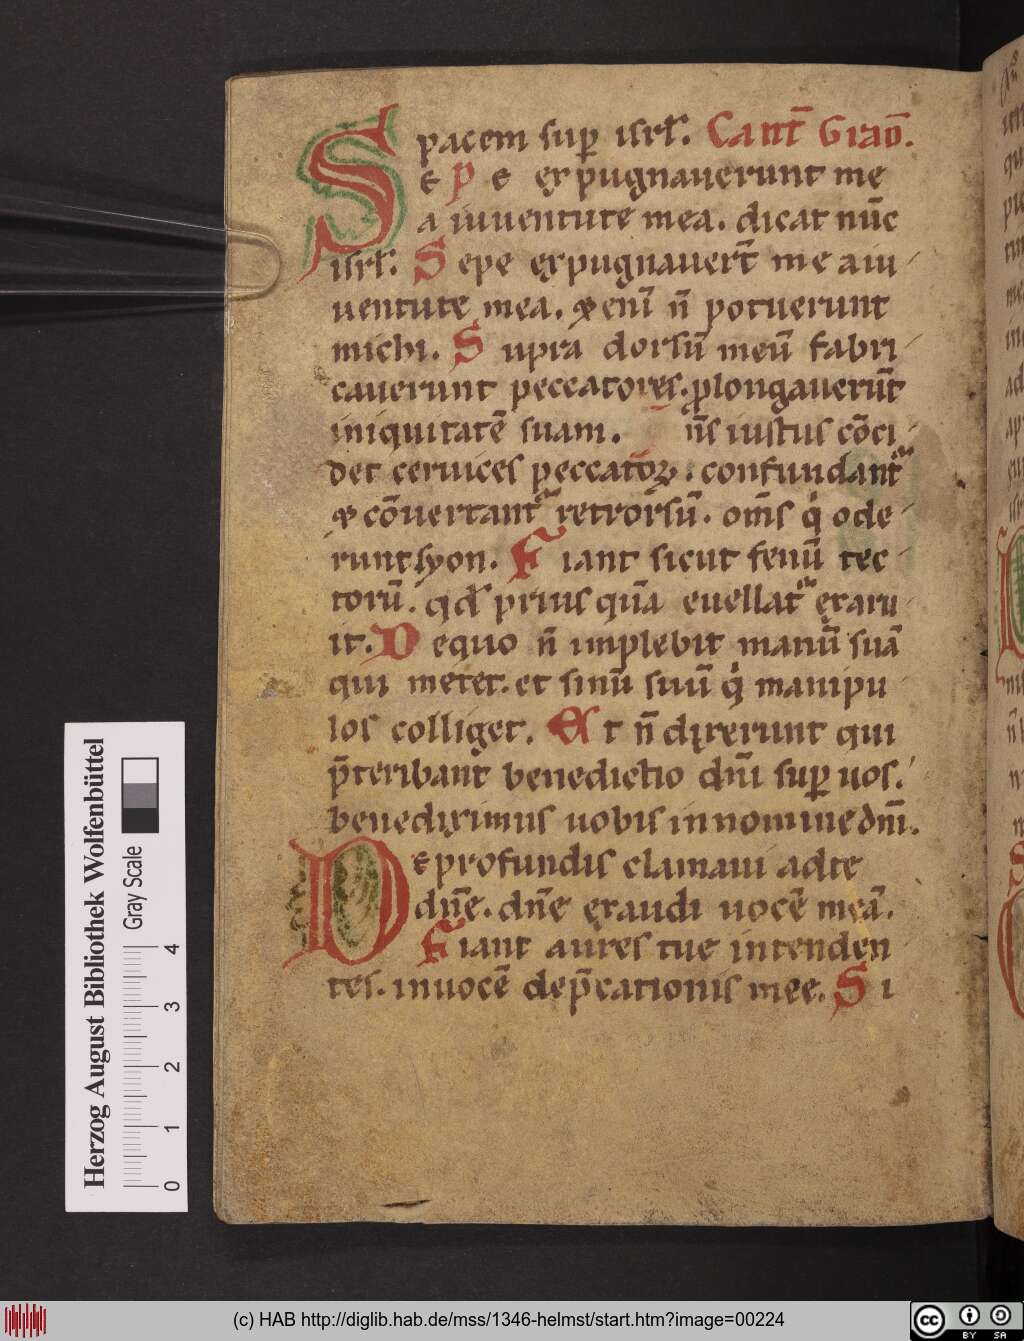 pacem sup isrl̄. Cant̄ Graꝺ̄.
Se p e expugnauerunt me
a iuuentute mea. dicat nūc
isrl̄. Sepe expugnauer̄t me a iu
uentute mea. & eni̅ n̄ potuerunt
michi. Supra dorsū meū fabri
cauerunt peccatores. ꝓlongauerūt
iniquitatē suam. n̄s iustus cōci
det ceruices peccatoꝝ. confundant᷑
& cōuertant᷑ retrorsū. om̄s q̇ ode
runt syon. Fiant sicut fenū tec
torū. qd̄ prius quā euellat᷑ exaru
it. De quo n̄ implebit manū suā
qui metet. et sinū suū q̇ manipu
los colliget. Et n̄ dixerunt qui
p̄teribant benedictio dn̄i sup uos.
benediximus uobis in nomine dn̄i.
De profundis clamaui ad te
dn̄e. dn̄e exaudi uocē meā.
Fiant aures tue intenden
tes. in uocē dep̄cationis mee. Si
Herzog August Bibliothek Wolfenbüttel
Gray Scale
0 1 2 3 4
(c) HAB http://diglib.hab.de/mss/1346-helmst/start.htm?image=00224
cc BY SA